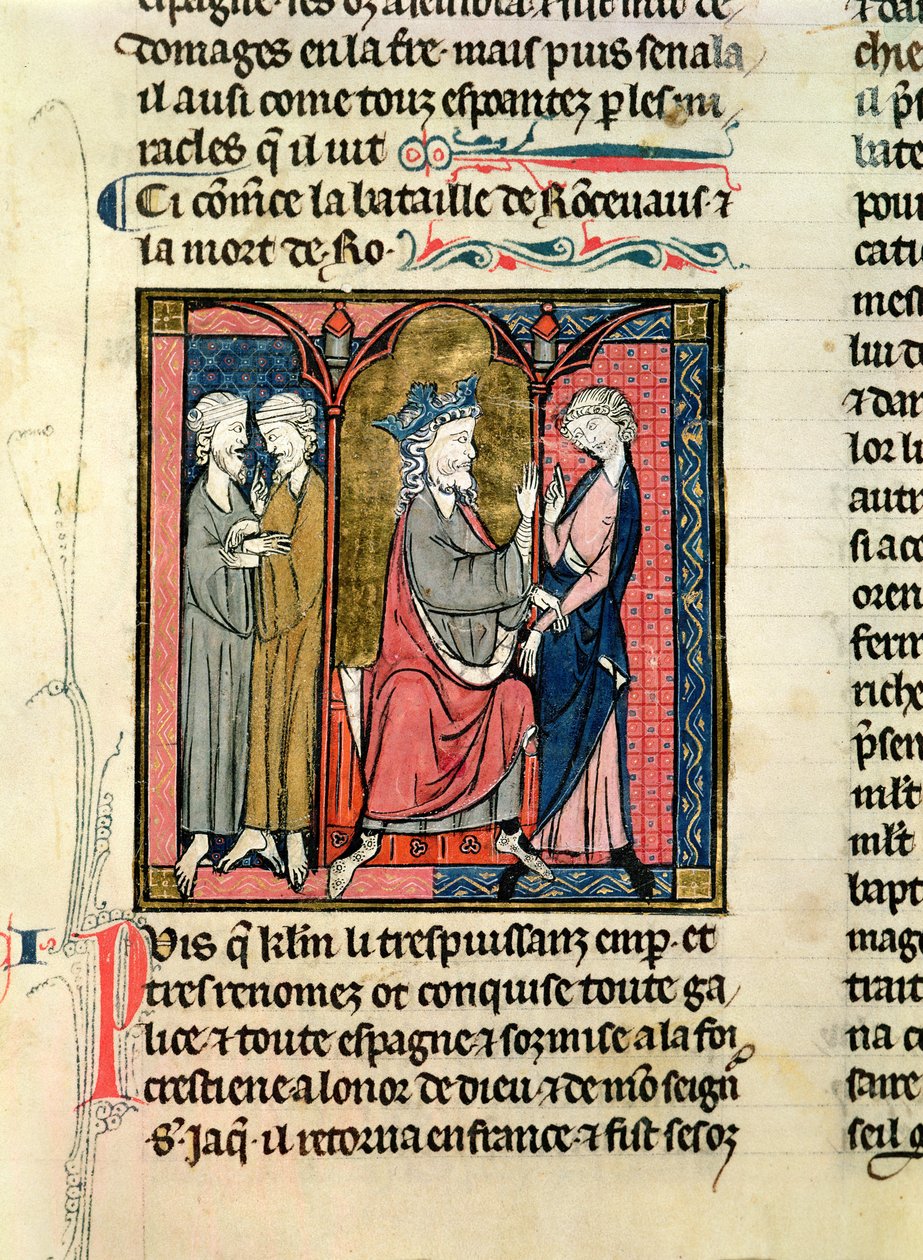 domages en la t̄re. mais puis sen ala
il ausi come touz espoantez p les mi
racles q̄ il uit
Ci cōm̄ce la bataille de Rōceuaus ⁊
la mort de Ro.
Puis q̄ kl̄m li trespuissanz emp̄. et
tres renomez ot conquise toute ga
lice ⁊ toute espagne ⁊ sozmise a la foi
crestiene a lonor de dieu ⁊ de mō seign̄
S. Jaq̄. il retorna en france ⁊ fist ses oz
pour
cati
mes
liu d
⁊ dan
lor li
autr
si aco
oren
ferm
riche
p̄sen
ml̄t
ml̄t
bapt
mag
trait
na c
saire
seil q